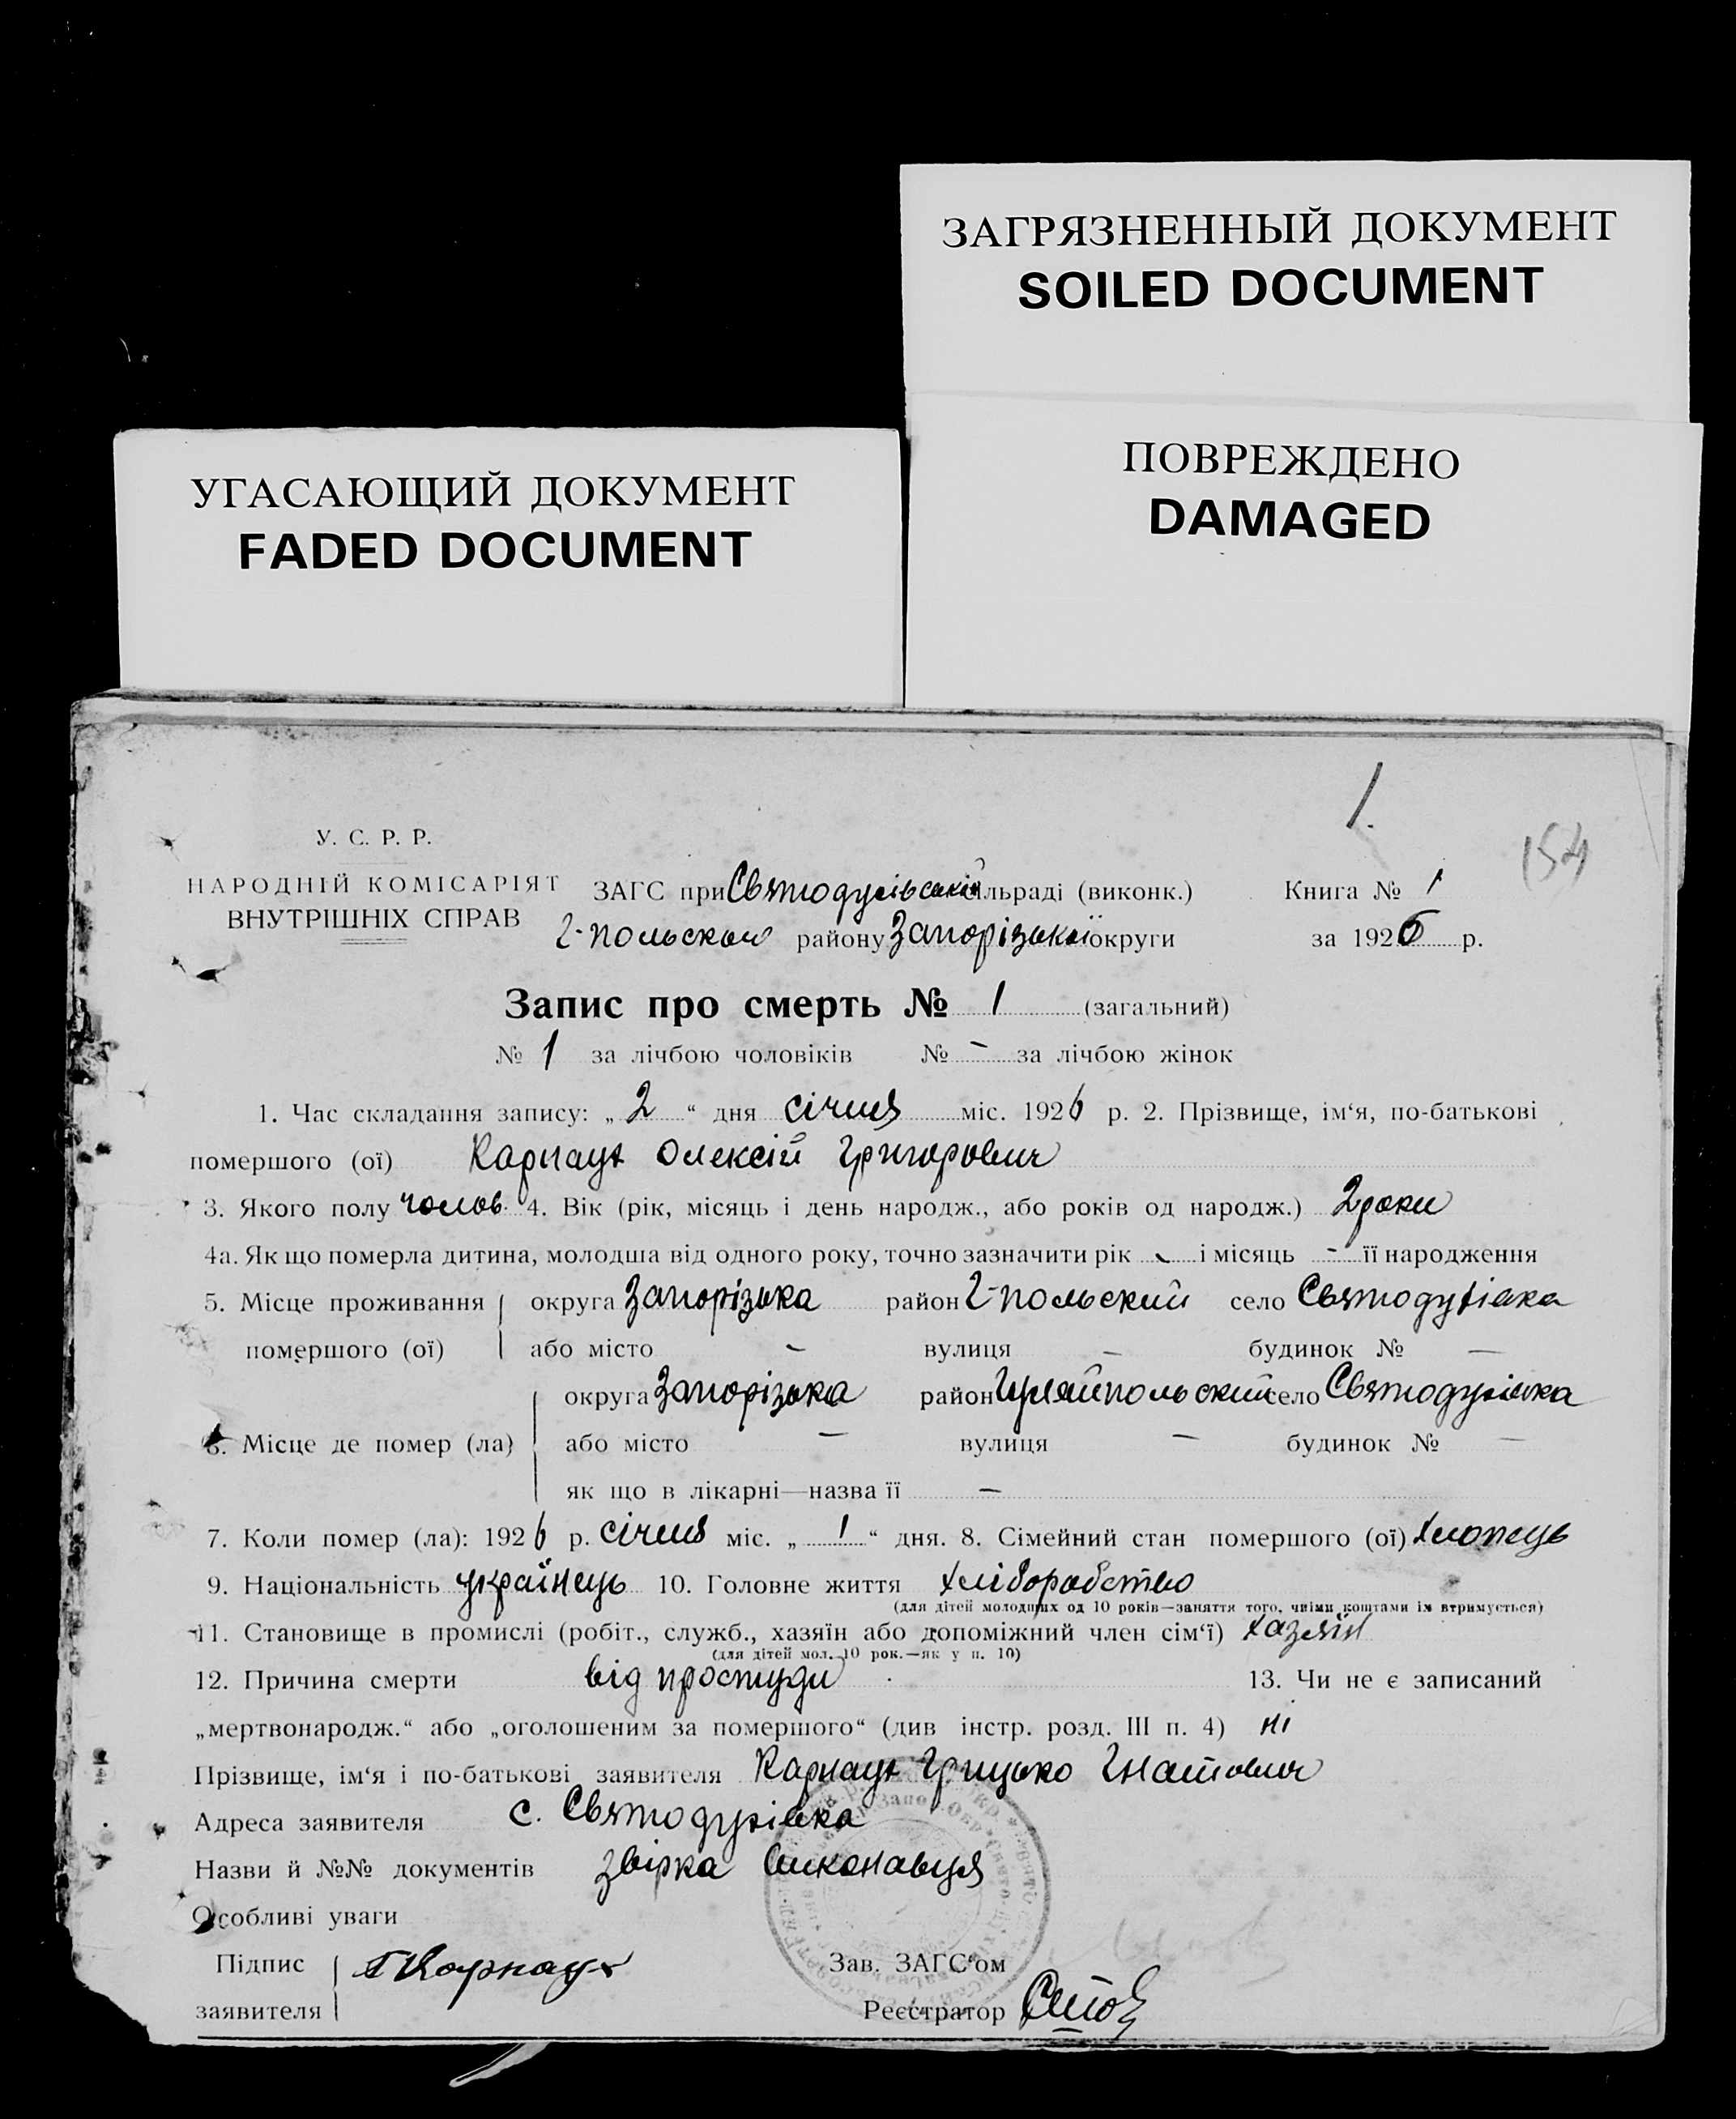 ЗАГРЯЗНЕННЫЙ ДОКУМЕНТ
SOILED DOCUMENT
УГАСАЮЩИЙ ДОКУМЕНТ
FADED DOCUMENT
ПОВРЕЖДЕНО
DAMAGED
1.
154
У. С. Р. Р.
НАРОДНІЙ КОМІСАРІЯТ
ВНУТРІШНІХ СПРАВ
ЗАГС при Святодухівській сільраді (виконк.) Книга № 1
Г-польского району Запорізької округи за 1926 р.
Запис про смерть № 1 (загальний)
№ 1 за лічбою чоловіків № – за лічбою жінок
1. Час складання запису: „2“ дня січня міс. 1926 р. 2. Прізвище, ім‘я, по-батькові
помершого (ої) Карнаух Олексій Григорович
3. Якого полу чолов. 4. Вік (рік, місяць і день народж., або років од народж.) 2 роки
4а. Як що померла дитина, молодша від одного року, точно зазначити рік – і місяць – її народження
5. Місце проживання округа Запорізька район Г-польский село Святодухівка
помершого (ої) або місто – вулиця – будинок № —
округа Запорізька район Гуляйпольский село Святодухівка
6. Місце де помер (ла) або місто – вулиця – будинок № —
як що в лікарні—назва її –
7. Коли помер (ла): 1926 р. січня міс. „1“ дня. 8. Сімейний стан помершого (ої) хлопець
9. Національність українець 10. Головне життя хліборобство
(для дітей молодших од 10 років—заняття того, чиїми коштами їх втримується)
11. Становище в промислі (робіт., служб., хазяїн або допоміжний член сім‘ї) хазяїн
(для дітей мол. 10 рок.—як у п. 10)
12. Причина смерти від простуди 13. Чи не є записаний
„мертвонародж.“ або „оголошеним за помершого“ (див інстр. розд. III п. 4) ні
Прізвище, ім‘я і по-батькові заявителя Карнаух Грицько Гнатович
Адреса заявителя с. Святодухівка
Назви й №№ документів звірка виконавця
Особливі уваги
Підпис Г Карнаух Зав. ЗАГС‘ом
заявителя Реєстратор